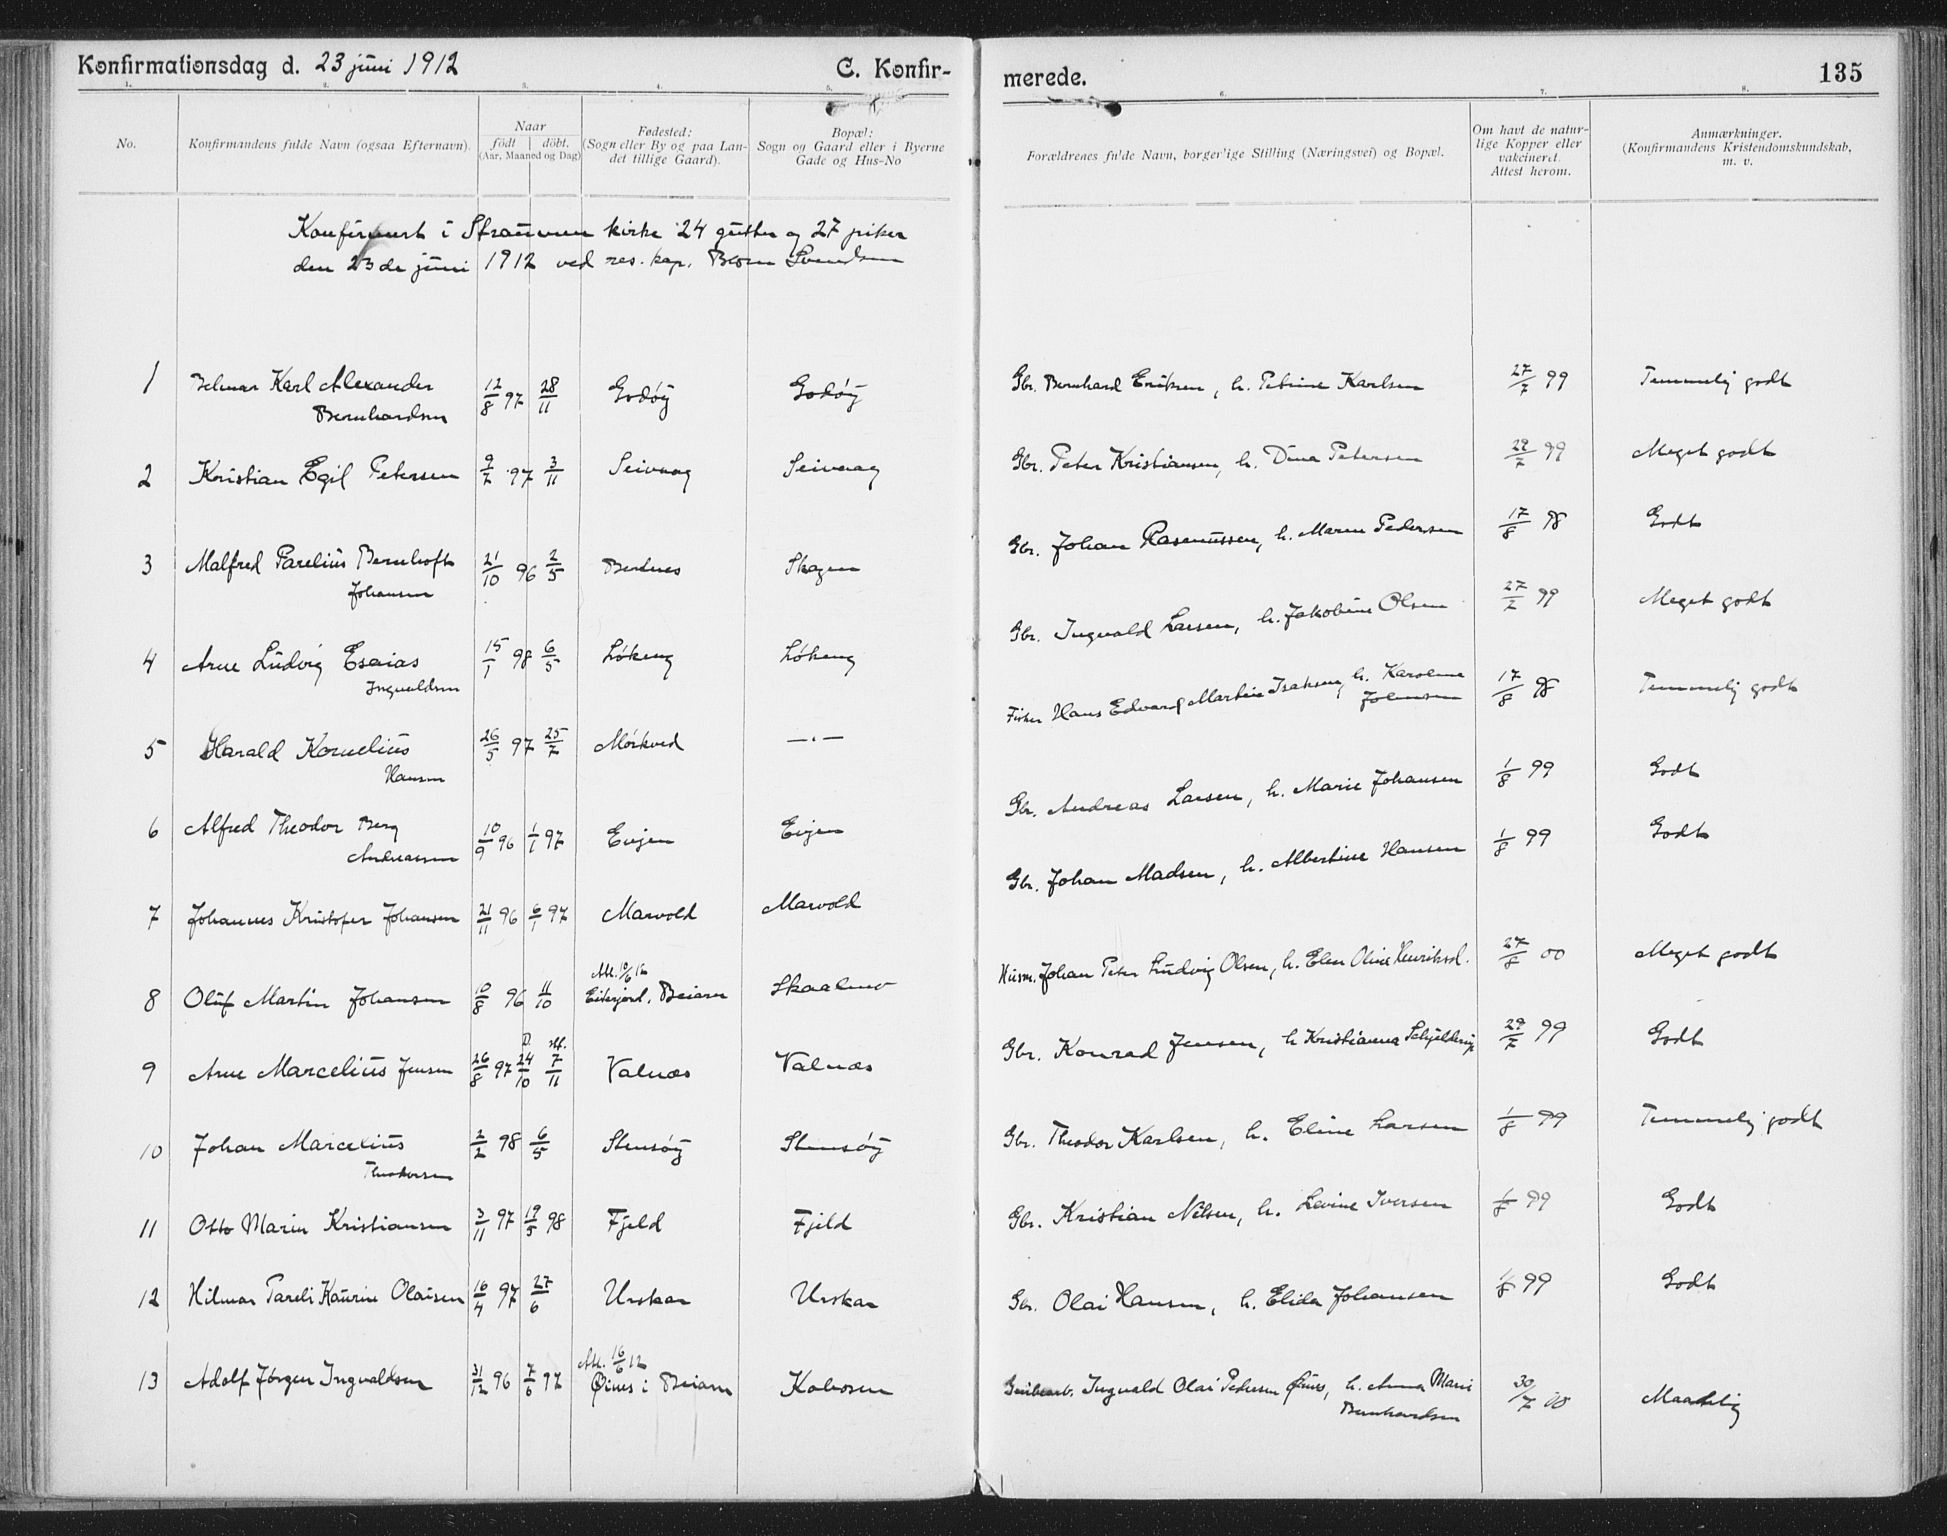 Konfirmationsdag d. 23 juni 1912
C. Konfir-
merede.
135
1. 2. 3. 4. 5. 6. 7. 8.
No.
Konfirmandens fulde Navn (ogsaa Efternavn).
Naar
födt | döbt.
(Aar, Maaned og Dag)
Fødested:
(Sogn eller By og paa Lan-
det tillige Gaard).
Bopæl:
Sogn og Gaard eller i Byerne
Gade og Hus-No
Forældrenes fulde Navn, borgerlige Stilling (Næringsvei) og Bopæl.
Om havt de natur-
lige Kopper eller
vakcineret.
Attest herom.
Anmærkninger.
(Konfirmandens Kristendomskundskab,
m. v.
Konfirmert i Straumen kirke 24 gutter og 27 piker
den 23de juni 1912 ved res. kap. Bloem Svendsen
1 Karl Alexander 12/8 97 28/11 Godöy Godöy Gbr. Bernhard Eriksen, h. Petrine Karlsen 27/7 99 Temmelig godt
Bernhardsen
2 Kristian Egil Petersen 9/7 97 3/11 Seivaag Seivaag Gbr. Peter Kristiansen, h. Dina Petersen 29/7 99 Meget godt
3 Malfred Parelius Bernhoft 21/10 96 2/5 Bodnes Skagen Gbr. Johan Rasmussen, h. Maren Pedersen 17/8 98 Godt
Johansen
4 Arne Ludvig Esaias 15/1 98 6/5 Lökeng Lökeng Gbr. Ingvald Larsen, h. Jakobine Olsen 27/7 99 Meget godt
Ingvaldsen
5 Harald Kornelius 26/5 97 25/7 Mörkved —"— Fisker Hans Edvard Martin Isaksen, h. Karoline 17/8 98 Temmelig godt
Hansen
Johansen
6 Alfred Theodor Berg 10/9 96 1/1 97 Evjen Evjen Gbr. Andreas Larsen, h. Marie Johansen 1/8 99 Godt
Andreassen
7 Johannes Kristofer Johansen 21/11 96 6/1 97 Marvold Marvold Gbr. Johan Madsen, h. Albertine Hansen 1/8 99 Godt
Att. 10/6 12
8 Oluf Martin Johansen 10/8 96 11/10 Eiterjord, Beiarn Skaalmo Husm. Johan Peter Ludvig Olsen, h. Elen Oline Henriksd. 27/8 00 Meget godt
9 Arne Marcelius Jensen 26/8 97 24/10 7/11 Valnæs Valnæs Gbr. Konrad Jensen, h Kristianna Schjelderup 29/7 99 Godt
10 Johan Marcelius 2/2 98 6/5 Stensöy Stensöy Gbr. Theodor Karlsen, h. Eline Larsen 1/8 99 Temmelig godt
Theodorsen
11 Otto Marin Kristiansen 3/11 97 19/5 98 Fjeld Fjeld Gbr. Kristian Nilsen, h. Levine Iversen 1/8 99 Godt
12 Hilmar Pareli Kaurin Olaisen 16/4 97 27/6 Urskar Urskar Gbr. Olai Hansen, h. Elida Johansen 1/8 99 Godt
Att. 16/6 12
13 Adolf Jörgen Ingvaldsen 31/12 96 7/6 97 Øines i Beiarn Kobosen Ingvald Olai Pedersen Øines, h. Anna Marie 30/7 00 Maadelig
Bernhardsen